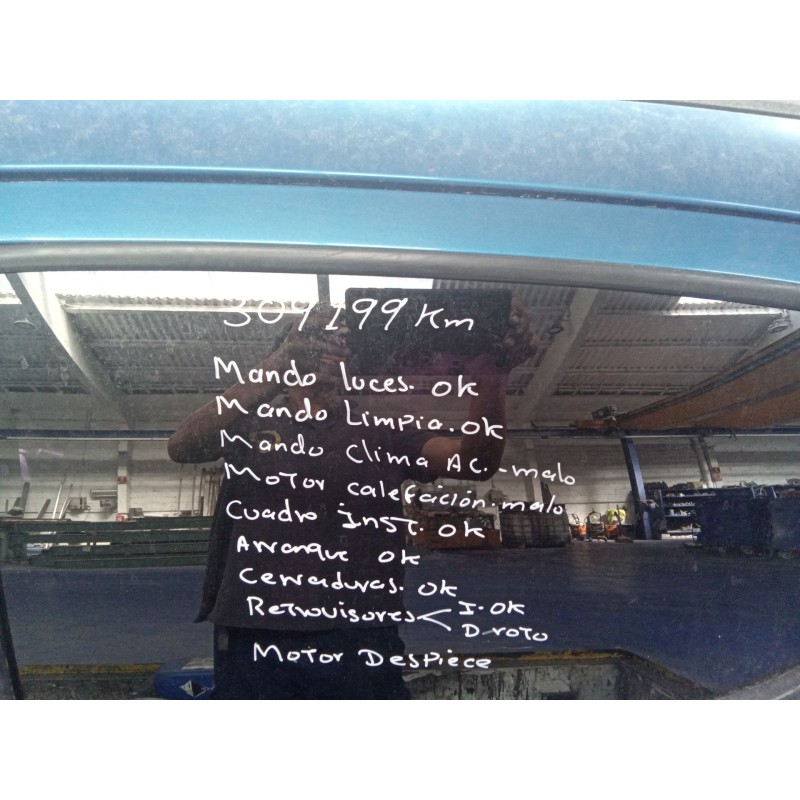 309199 Km
Mando luces. ok
Mando Limpia. ok
Mando Clima AC. - malo
Motor calefaición. malo
Cuadro Inst. ok
Arranque ok
Cerraduras. ok
Retrovisores < I. OK
D - roto
Motor Despiece